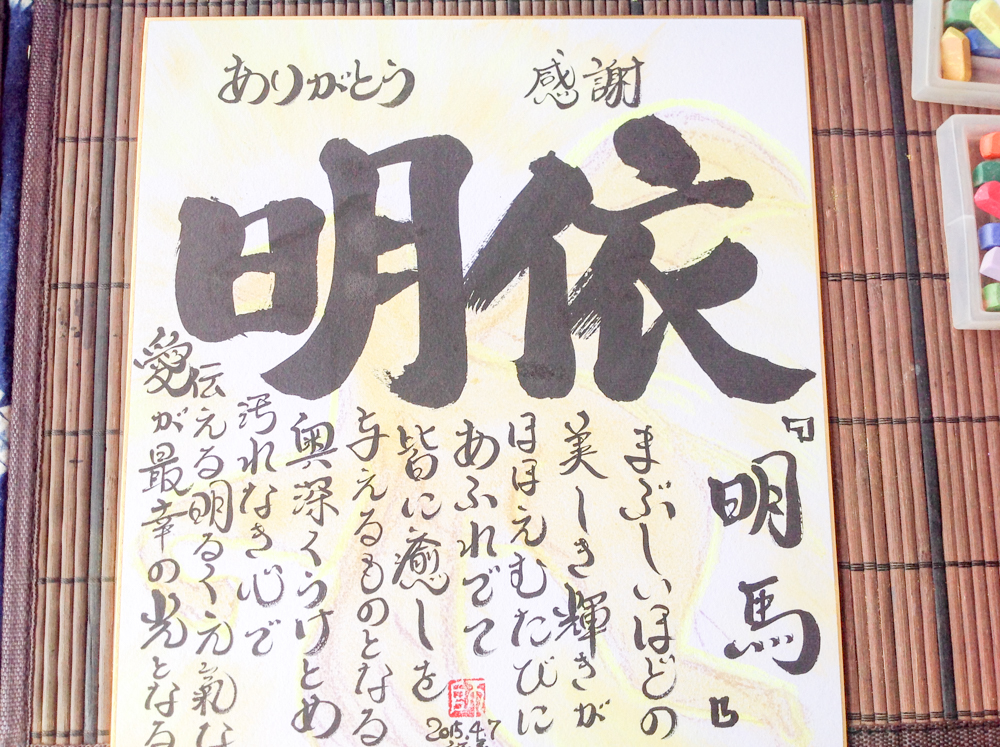 ありがとう 感謝
明依
『明馬』
まぶしいほどの
美しき輝きが
ほほえむたびに
あふれでて
皆に癒しを
与えるものとなる
奥深くうけとめ
汚れなき心で
伝える明るく元氣な
愛が最幸の光となる
2015.4.7